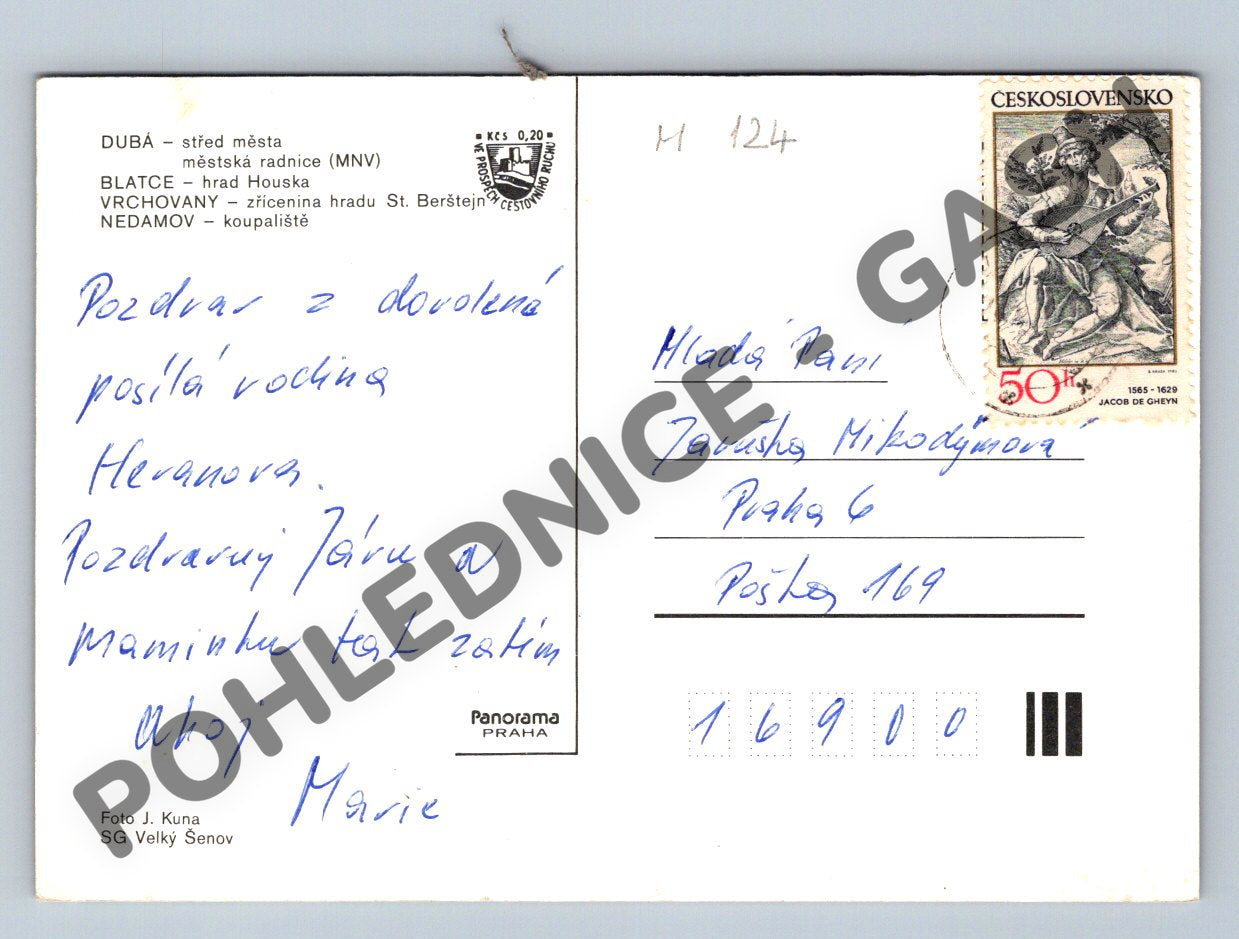 DUBÁ – střed města
městská radnice (MNV)
BLATCE – hrad Houska
VRCHOVANY – zřícenina hradu St. Berštejn
NEDAMOV – koupaliště
KČS 0,20
VE PROSPĚCH CESTOVNÍHO RUCHU
Pozdrav z dovolená
posílá rodina
Heranova.
Pozdravuj Járu a
Maminku tak zatím
Ahoj
Marie
Panorama
PRAHA
Foto J. Kuna
SG Velký Šenov
M 124
ČESKOSLOVENSKO
50 h
1565 - 1629
JACOB DE GHEYN
Mladá Paní
Jaruška Mikodýmová
Praha 6
Pošta 169
16900
POHLEDNICE - GA